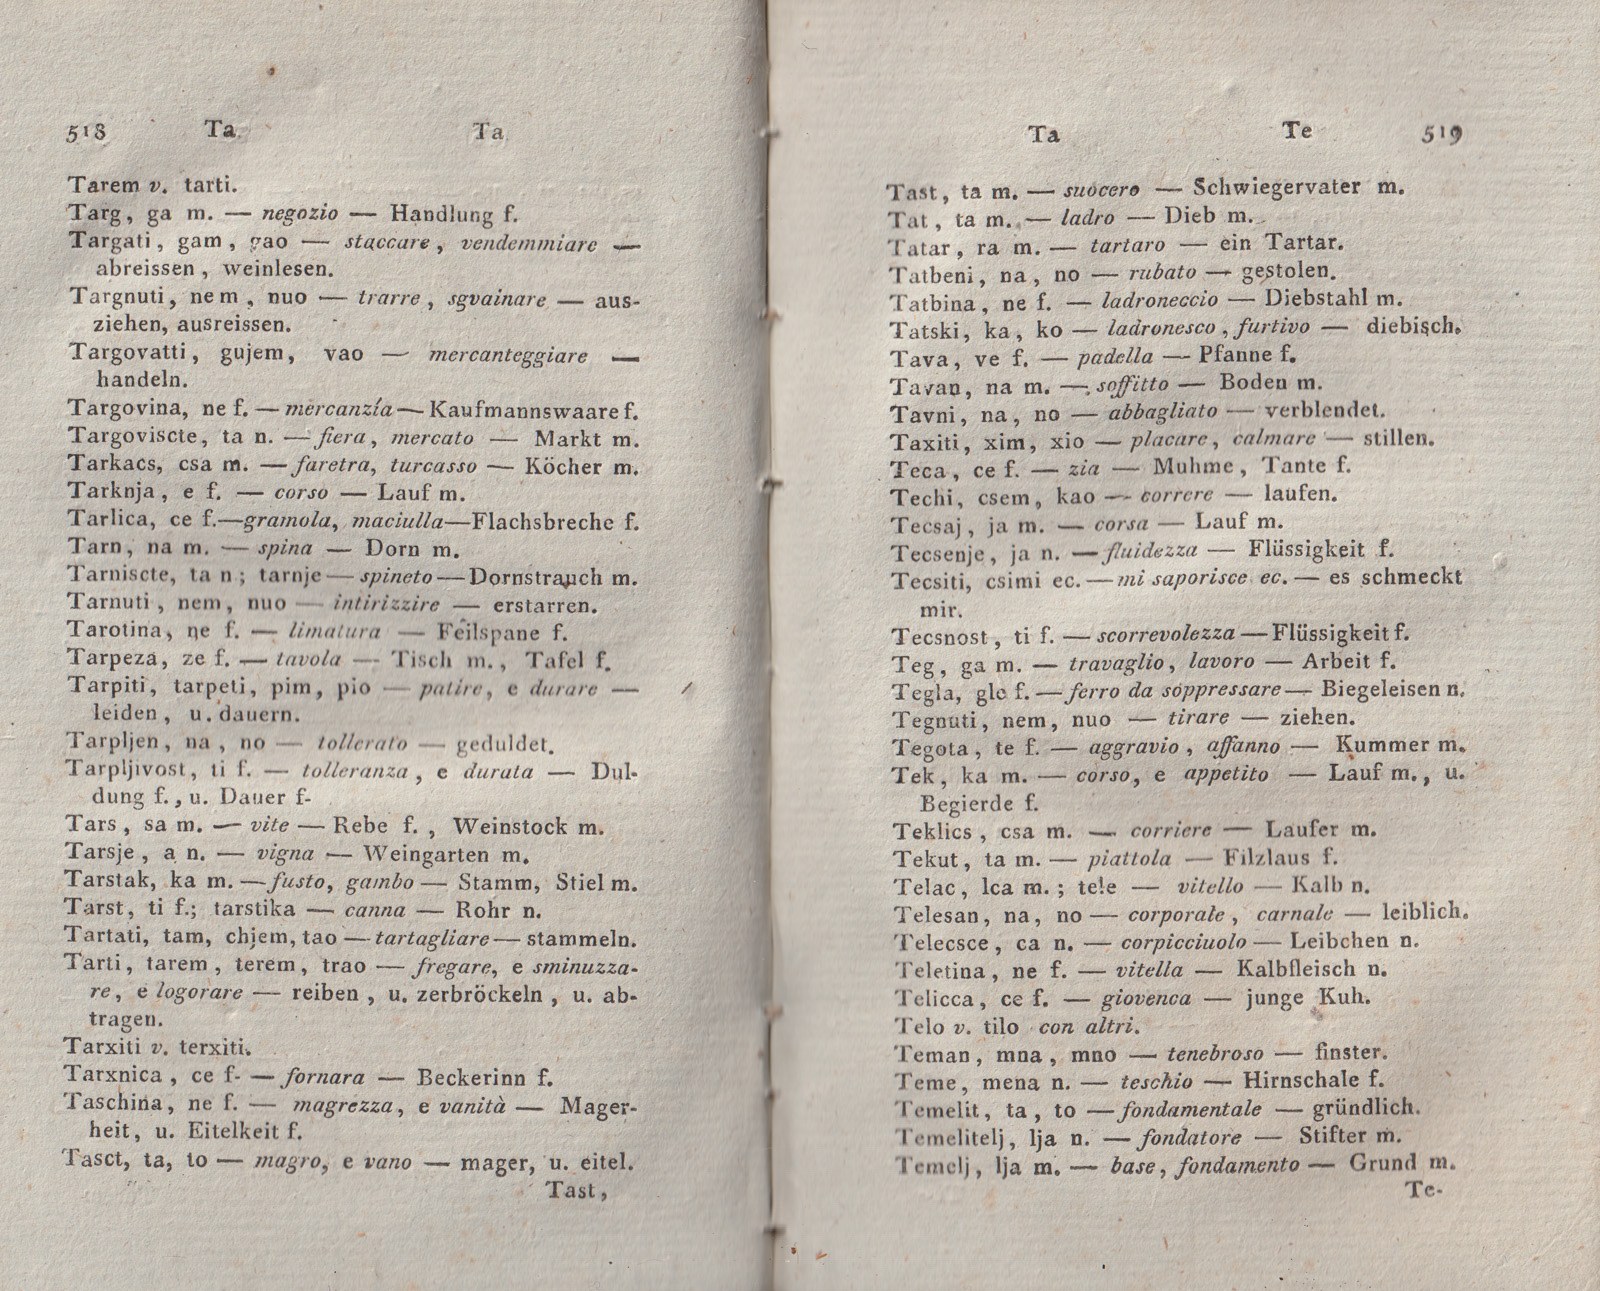 518 Ta Ta
Tarem v. tarti.
Targ, ga m. — negozio — Handlung f.
Targati, gam, gao — staccare, vendemmiare —
abreissen, weinlesen.
Targnuti, nem, nuo — trarre, sgvainare — aus-
ziehen, ausreissen.
Targovatti, gujem, vao — mercanteggiare —
handeln.
Targovina, ne f. — mercanzía — Kaufmannswaare f.
Targoviscte, ta n. — fiera, mercato — Markt m.
Tarkacs, csa m. — faretra, turcasso — Köcher m.
Tarknja, e f. — corso — Lauf m.
Tarlica, ce f.—gramola, maciulla—Flachsbreche f.
Tarn, na m. — spina — Dorn m.
Tarniscte, ta n; tarnje — spineto — Dornstrauch m.
Tarnuti, nem, nuo — intirizzire — erstarren.
Tarotina, ne f. — limatura — Feilspane f.
Tarpeza, ze f. — tavola — Tisch m., Tafel f.
Tarpiti, tarpeti, pim, pio — patire, e durare —
leiden, u. dauern.
Tarpljen, na, no — tollerato — geduldet.
Tarpljivost, ti f. — tolleranza, e durata — Dul-
dung f., u. Dauer f-
Tars, sa m. — vite — Rebe f., Weinstock m.
Tarsje, a n. — vigna — Weingarten m.
Tarstak, ka m. — fusto, gambo — Stamm, Stiel m.
Tarst, ti f.; tarstika — canna — Rohr n.
Tartati, tam, chjem, tao — tartagliare — stammeln.
Tarti, tarem, terem, trao — fregare, e sminuzza-
re, e logorare — reiben, u. zerbröckeln, u. ab-
tragen.
Tarxiti v. terxiti.
Tarxnica, ce f- — fornara — Beckerinn f.
Taschina, ne f. — magrezza, e vanità — Mager-
heit, u. Eitelkeit f.
Tasct, ta, to — magro, e vano — mager, u. eitel.
Tast,
Ta Te 519
Tast, ta m. — suocero — Schwiegervater m.
Tat, ta m. — ladro — Dieb m.
Tatar, ra m. — tartaro — ein Tartar.
Tatbeni, na, no — rubato — gestolen.
Tatbina, ne f. — ladroneccio — Diebstahl m.
Tatski, ka, ko — ladronesco, furtivo — diebisch.
Tava, ve f. — padella — Pfanne f.
Tavan, na m. — soffitto — Boden m.
Tavni, na, no — abbagliato — verblendet.
Taxiti, xim, xio — placare, calmare — stillen.
Teca, ce f. — zia — Muhme, Tante f.
Techi, csem, kao — correre — laufen.
Tecsaj, ja m. — corsa — Lauf m.
Tecsenje, ja n. — fluidezza — Flüssigkeit f.
Tecsiti, csimi ec. — mi saporisce ec. — es schmeckt
mir.
Tecsnost, ti f. — scorrevolezza — Flüssigkeit f.
Teg, ga m. — travaglio, lavoro — Arbeit f.
Tegla, gle f. — ferro da soppressare — Biegeleisen n.
Tegnuti, nem, nuo — tirare — ziehen.
Tegota, te f. — aggravio, affanno — Kummer m.
Tek, ka m. — corso, e appetito — Lauf m., u.
Begierde f.
Teklics, csa m. — corriere — Laufer m.
Tekut, ta m. — piattola — Filzlaus f.
Telac, lca m.; tele — vitello — Kalb n.
Telesan, na, no — corporale, carnale — leiblich.
Telecsce, ca n. — corpicciuolo — Leibchen n.
Teletina, ne f. — vitella — Kalbfleisch n.
Telicca, ce f. — giovenca — junge Kuh.
Telo v. tilo con altri.
Teman, mna, mno — tenebroso — finster.
Teme, mena n. — teschio — Hirnschale f.
Temelit, ta, to — fondamentale — gründlich.
Temelitelj, lja n. — fondatore — Stifter m.
Temelj, lja m. — base, fondamento — Grund m.
Te-